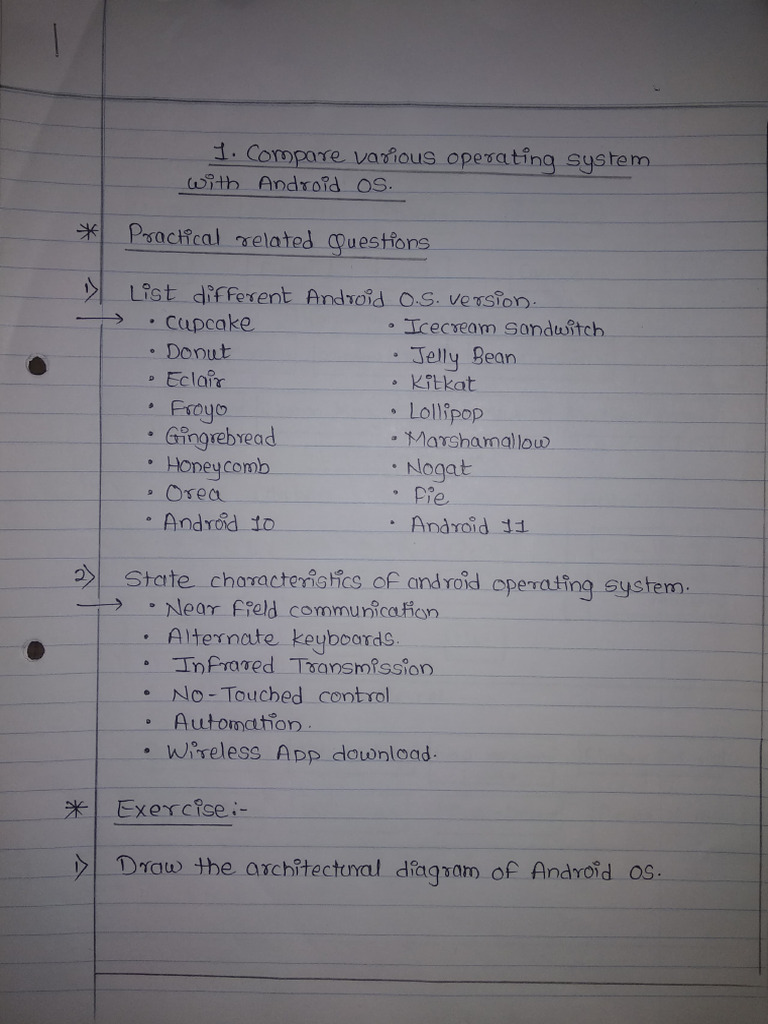 1
1. Compare various operating system
with Android OS.
* Practical related Questions
1) List different Android O.S. version.
→ • Cupcake • Icecream Sandwitch
• Donut • Jelly Bean
• Eclair • Kitkat
• Froyo • Lollipop
• Gingrebread • Marshamallow
• Honeycomb • Nogat
• Orea • Pie
• Android 10 • Android 11
2) State characteristics of android operating system.
→ • Near field communication
• Alternate keyboards.
• Infrared Transmission
• No-Touched control
• Automation.
• Wireless App download.
* Exercise:-
1) Draw the architectural diagram of Android OS.